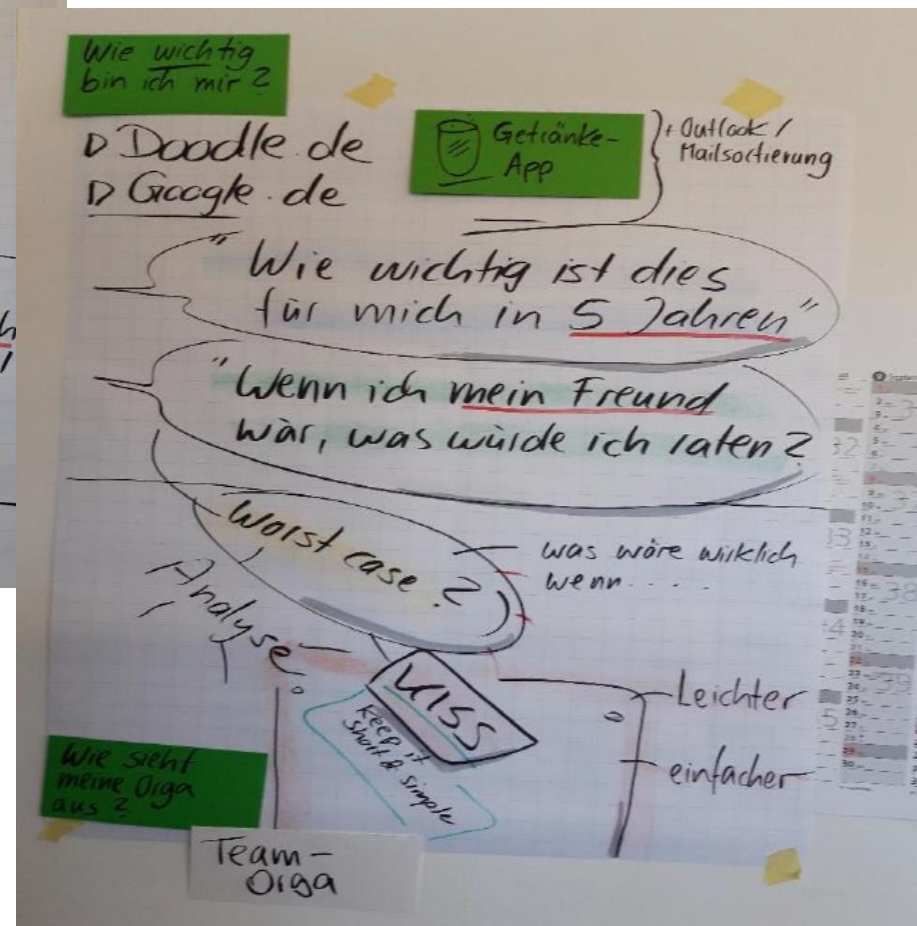 Wie wichtig
bin ich mir?
Doodle.de
Google.de
Getränke-
App
+ Outlook /
Mailsortierung
"Wie wichtig ist dies
für mich in 5 Jahren"
"Wenn ich mein Freund
wär, was würde ich raten?
Worst case?
was wäre wirklich
wenn....
Analyse.
KISS
keep it
short & simple
Leichter
einfacher
Wie sieht
meine Orga
aus?
Team-
Orga